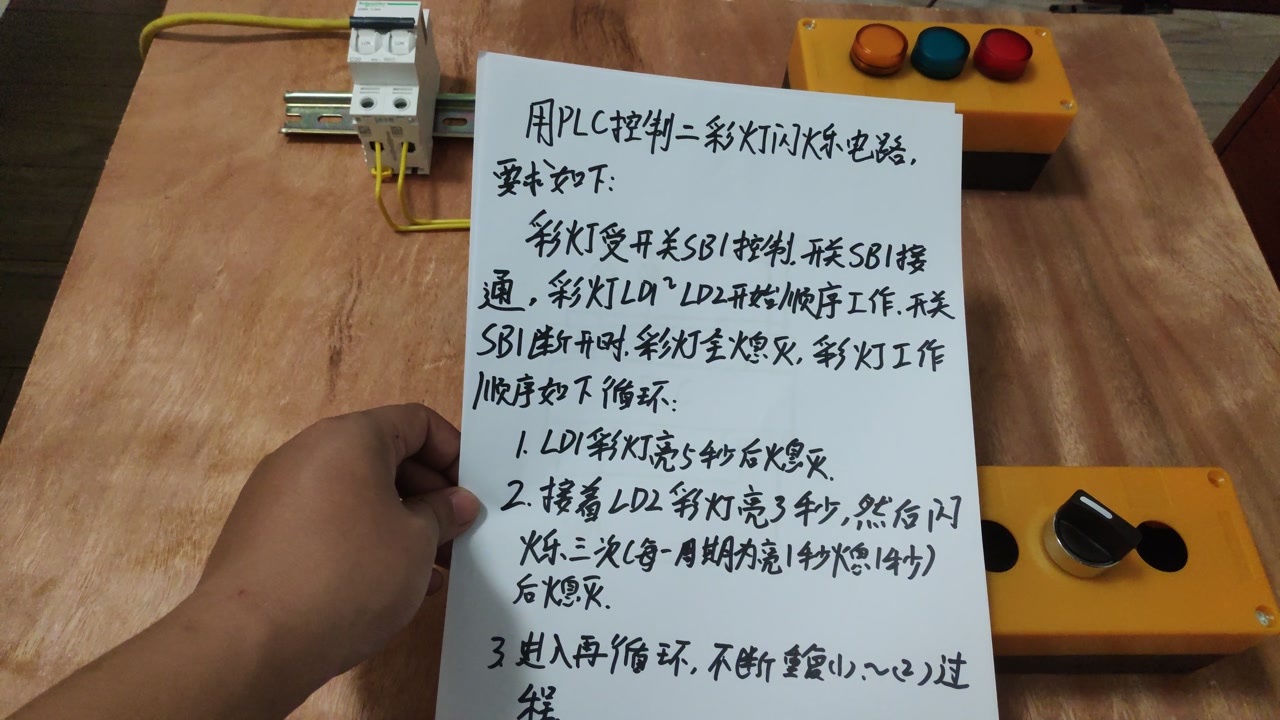 用PLC控制二彩灯闪烁电路,
要求如下:
彩灯受开关SB1控制.开关SB1接
通,彩灯LD1~LD2开始顺序工作.开关
SB1断开时.彩灯全熄灭,彩灯工作
顺序如下循环:
1. LD1彩灯亮5秒后熄灭.
2. 接着LD2彩灯亮3秒,然后闪
烁、三次(每一周期为亮1秒熄1秒)
后熄灭.
3.进入再循环,不断重复(1)、~(2)过
程